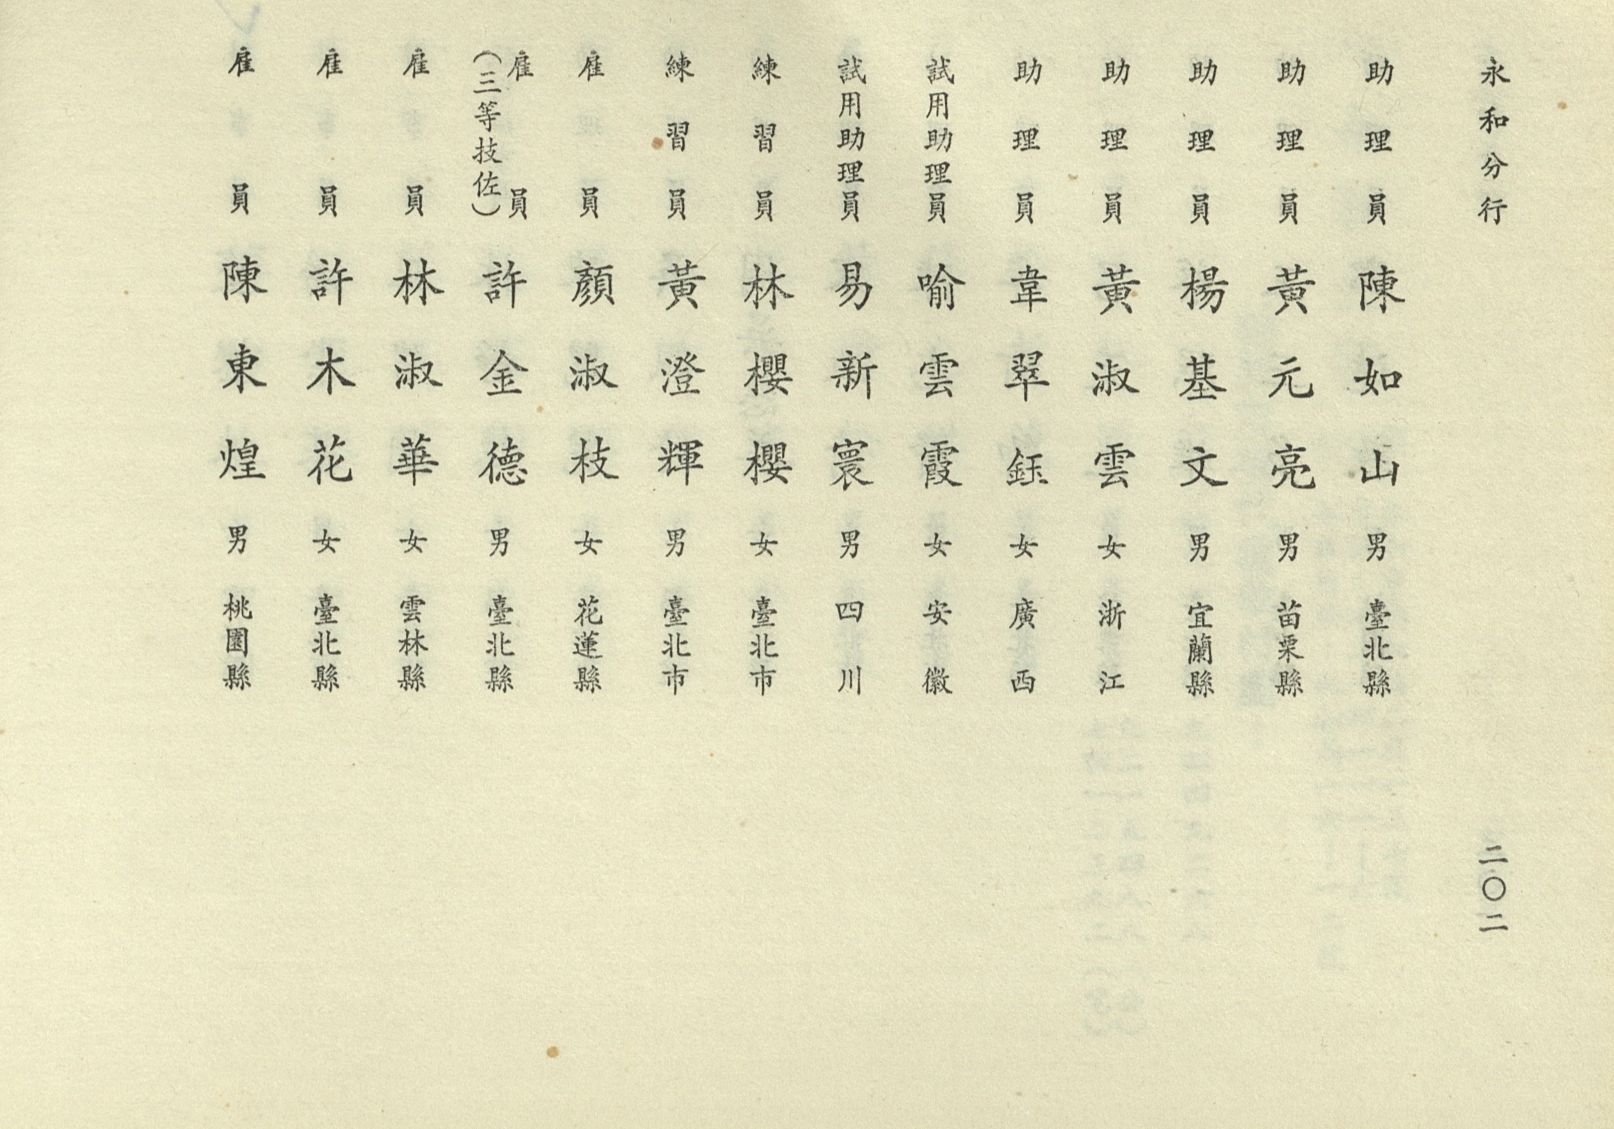 永和分行 二〇二
助理員 陳如山 男 臺北縣
助理員 黃元亮 男 苗栗縣
助理員 楊基文 男 宜蘭縣
助理員 黃淑雲 女 浙江
助理員 韋翠鈺 女 廣西
試用助理員 喻雲霞 女 安徽
試用助理員 易新寰 男 四川
練習員 林櫻櫻 女 臺北市
練習員 黃澄輝 男 臺北市
雇員 顏淑枝 女 花蓮縣
雇員(三等技佐) 許金德 男 臺北縣
雇員 林淑華 女 雲林縣
雇員 許木花 女 臺北縣
雇員 陳東煌 男 桃園縣